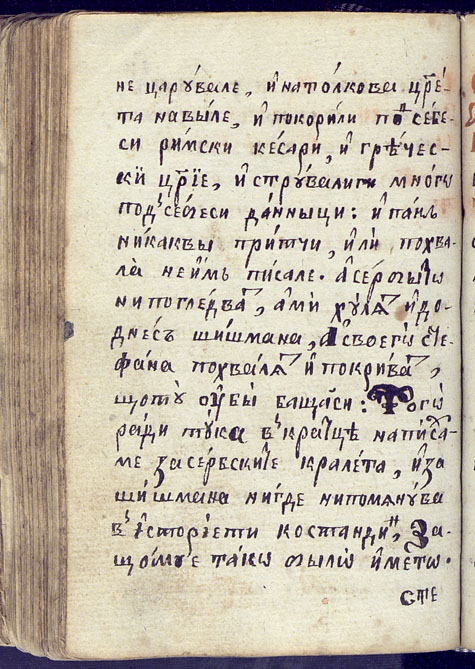 не царꙋ́вале, и҆ на то́лкова цр҃е́-
та навы́ле, и҆ покори́ли по себе-
си ри́мски ке́сари, и҆ гре́чес-
кїи цр҃їе, и҆ стрꙋ́валиги многѡ
под̾ себеси да́нныци: и҆ па́нъ
никаквы при́тчи, и҆ли́ похва-
ла̀ не и҆мь писале. а҆ сербїѡ
ни погледва, а҆ ми́ хꙋ́лѧт и҆ до
днесъ шишмана, а҆ своегѡ сте-
фа́на похва́лѧт и҆ покрива,
щото̀ ᲂу҆бы̀ баща́си: Тогѡ
ра́ди тꙋ́ка в̾ кра́тцѣ написа-
ме за сербските кралета, и҆ за
ши́шмана ни́где ни помѧнꙋва
в̾ и҆сторїети костанди, За-
що́мꙋ е такѡ было̀ и҆метѡ.
сте